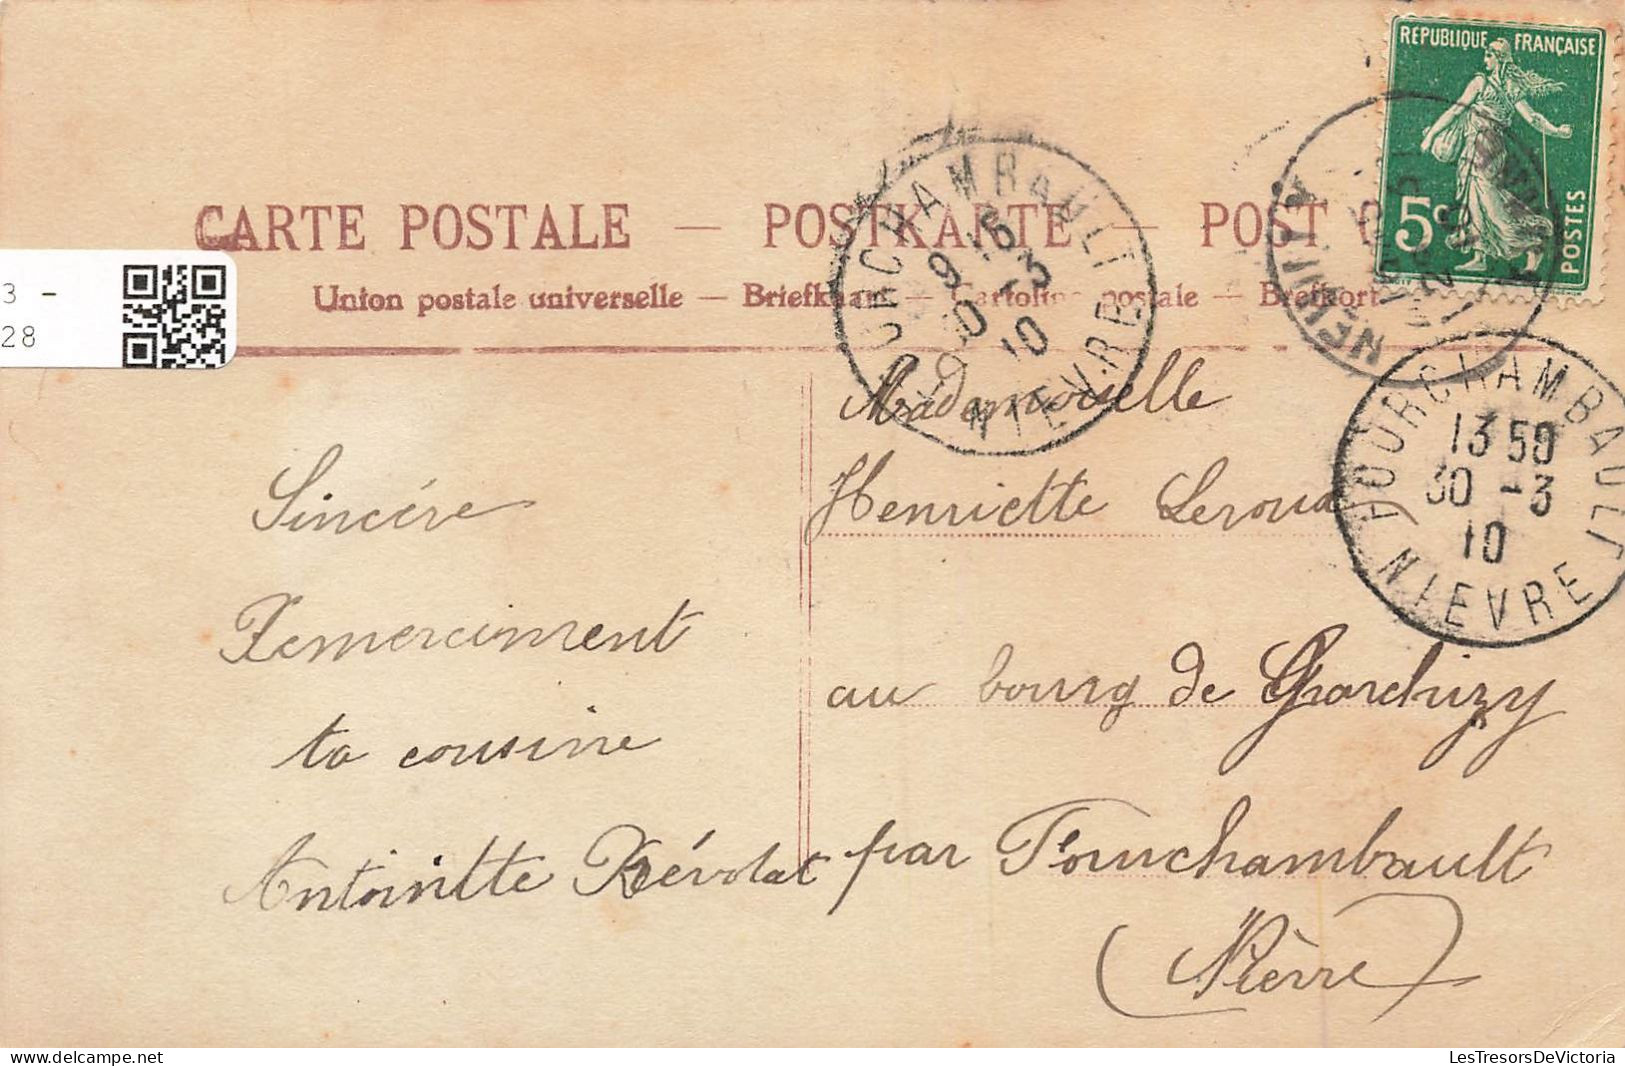 REPUBLIQUE FRANÇAISE
5c
POSTES
CARTE POSTALE — POSTKARTE — POST
Union postale universelle — Briefkaart — Cartolina postale — Brefkort
3 -
28
9 15
30 -3
10
NIEVRE
POURCHAMBAULT
13 50
30 -3
10
NIEVRE
Sincére
Remerciment
ta cousine
Antoinette Révolat
Mademoiselle
Henriette Leroux
au bourg de Garchizy
par Fourchambault
(Nièvre)
LesTresorsDeVictoria